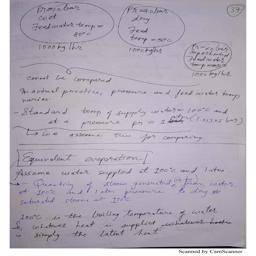 P = 10 bar
Feed water temp =
1000 kg/hr
P = 10 bar
dry
Feed
temp =
1000 kg/hr
37
Feed water
1000 kg/hr
cannot be compared
In actual practice, pressure and feed water temp
varies
Standard temp of supply water = 100°C and
at a pressure
we assume this for comparing
Equivalent evaporation
Assume water supplied at 100°C and 1 atm
Quantity of steam generated from water
at 100°C and 1 atm pressure to dry &
saturated steam at 100°C
100°C is the boiling temperature of water
& whatever heat is supplied
is simply the latent heat
Scanned by CamScanner